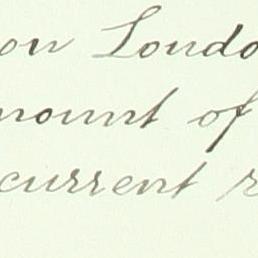 on Londo
mount of
current r